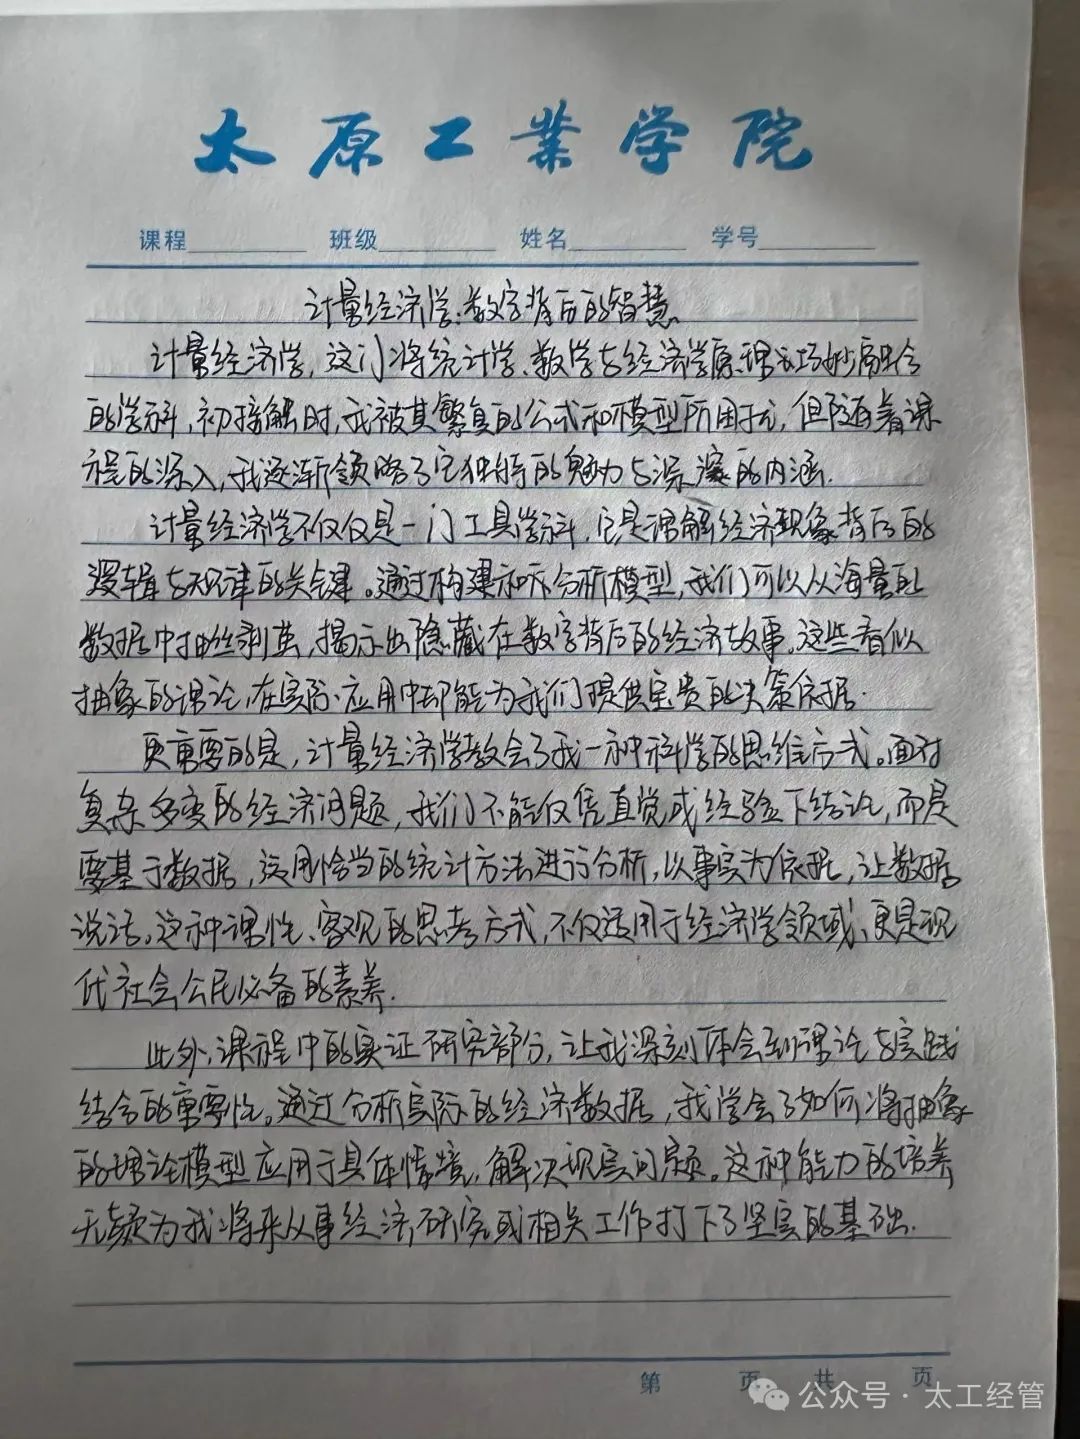 太原工业学院
课程 班级 姓名 学号
计量经济学:数字背后的智慧
计量经济学,这门将统计学、数学与经济学原理巧妙融合
的学科,初接触时,我被其繁复的公式和模型所困扰,但随着课
程的深入,我逐渐领略了它独特的魅力与深邃的内涵.
计量经济学不仅仅是一门工具学科,它是理解经济现象背后的
逻辑与规律的关键。通过构建和分析模型,我们可以从海量的
数据中抽丝剥茧,揭示出隐藏在数字背后的经济故事。这些看似
抽象的理论,在实际应用中却能为我们提供宝贵的决策依据.
更重要的是,计量经济学教会了我一种科学的思维方式。面对
复杂多变的经济问题,我们不能仅凭直觉或经验下结论,而是
要基于数据,运用恰当的统计方法进行分析,以事实为依据,让数据
说话。这种理性、客观的思考方式,不仅适用于经济学领域,更是现
代社会公民必备的素养.
此外,课程中的实证研究部分,让我深刻体会到理论与实践
结合的重要性。通过分析实际的经济数据,我学会了如何将抽象
的理论模型应用于具体情境,解决现实问题。这种能力的培养
无疑为我将来从事经济研究或相关工作打下了坚实的基础.
第 页 共 页
公众号·太工经管